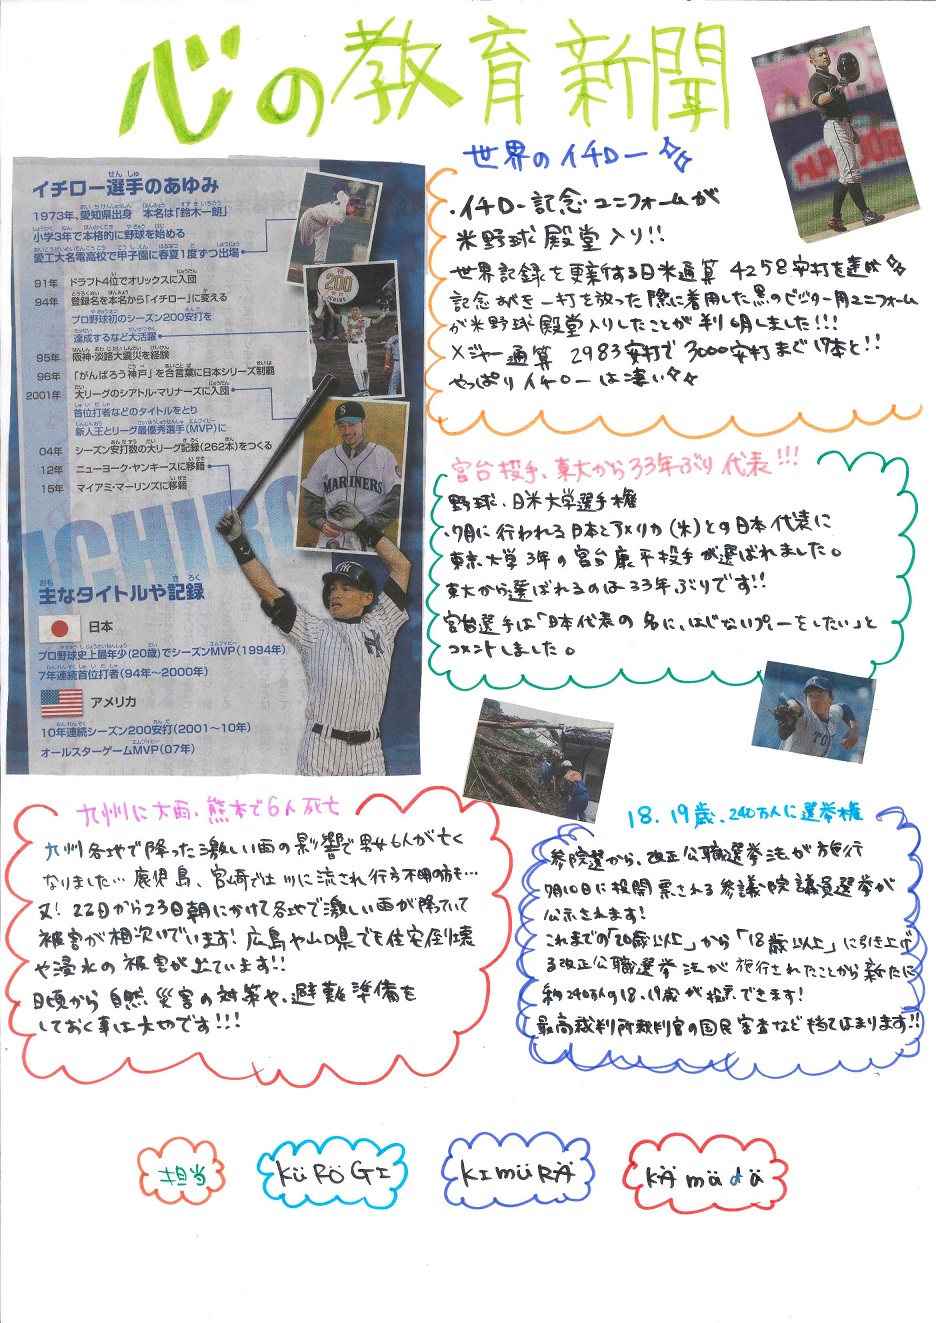 心の教育新聞
イチロー選手のあゆみ
1973年、愛知県出身 本名は「鈴木一朗」
小学3年で本格的に野球を始める
愛工大名電高校で甲子園に春夏1度ずつ出場
91年 ドラフト4位でオリックスに入団
94年 登録名を本名から「イチロー」に変える
プロ野球初のシーズン200安打を
達成するなど大活躍
95年 阪神・淡路大震災を経験
96年 「がんばろう神戸」を合言葉に日本シリーズ制覇
2001年 大リーグのシアトル・マリナーズに入団
首位打者などのタイトルをとり
新人王とリーグ最優秀選手(MVP)に
04年 シーズン安打数の大リーグ記録(262本)をつくる
12年 ニューヨーク・ヤンキースに移籍
15年 マイアミ・マーリンズに移籍
200
MARINERS
ICHIRO
主なタイトルや記録
日本
プロ野球史上最年少(20歳)でシーズンMVP(1994年)
7年連続首位打者(94年〜2000年)
アメリカ
10年連続シーズン200安打(2001〜10年)
オールスターゲームMVP(07年)
世界のイチロー
・イチロー記念ユニフォームが
米野球殿堂入り!!
世界記録を更新する日米通算4258安打を達成
記念すべき一打を放った際に着用した黒のビジター用ユニフォーム
が米野球殿堂入りしたことが判明しました!!!
メジャー通算2983安打で3000安打まで17本と!!
やっぱりイチローは凄い
宮台投手、東大から33年ぶり代表!!!
野球、日米大学選手権
・7月に行われる日本とアメリカ(米)との日本代表に
東京大学3年の宮台康平投手が選ばれました。
東大から選ばれるのは33年ぶりです!!
宮台選手は「日本代表の名に、はじないプレーをしたい」と
コメントしました。
九州に大雨、熊本で6人死亡
九州各地で降った激しい雨の影響で男女6人が亡く
なりました… 鹿児島、宮崎では川に流され行方不明の方も…
又! 22日から23日朝にかけて各地で激しい雨が降っていて
被害が相次いでいます! 広島や山口県でも住宅倒壊
や浸水の被害が出ています!!
日頃から自然災害の対策や、避難準備を
しておく事は大切です!!!
18.19歳、240万人に選挙権
参院選から、改正公職選挙法が施行
7月10日に投開票される参議院議員選挙が
公示されます!
これまでの「20歳以上」から「18歳以上」に引き上げ
る改正公職選挙法が施行されたことから新たに
約240万人の18.19歳が投票できます!
最高裁判所裁判官の国民審査なども当てはまります!!
担当
KÜRÖGI
KIMÜRÄ
KÄmädä